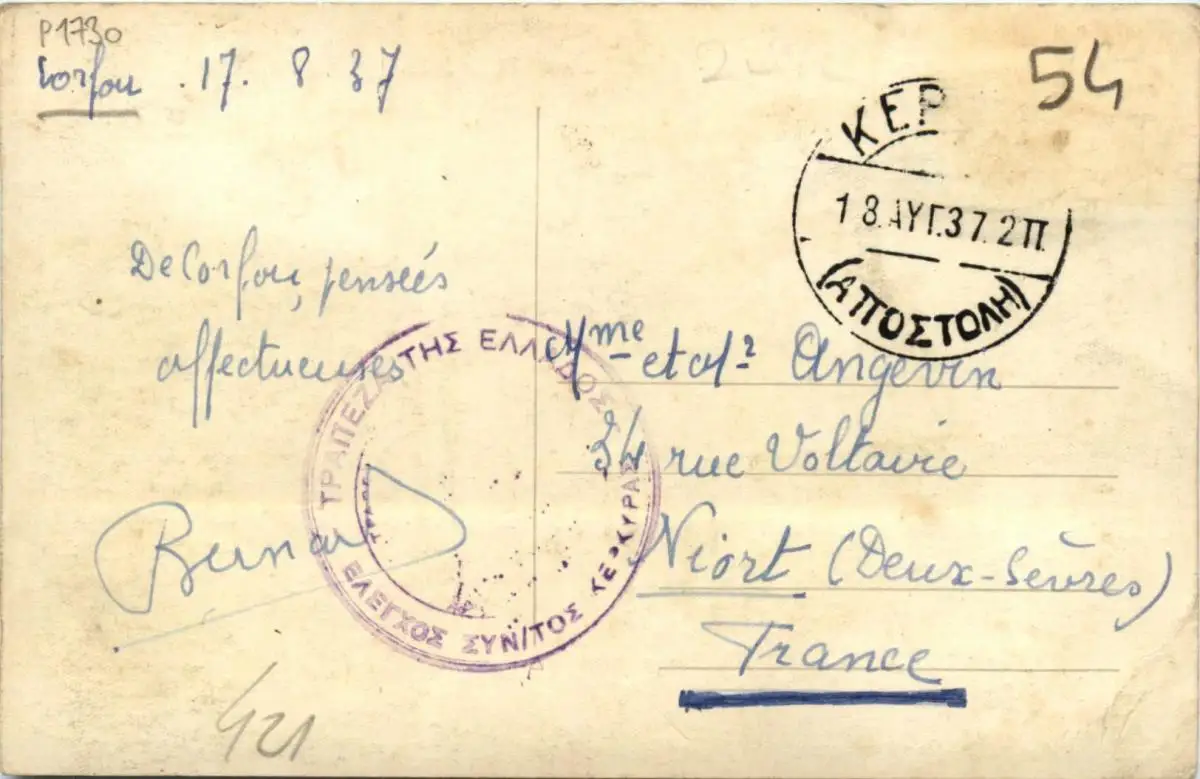 P1730
Corfou . 17. 8 37
54
ΚΕΡ
18.ΑΥΓ.37.2Π.
(ΑΠΟΣΤΟΛΗ)
De Corfou, pensées
affectueuses
Bernard
ΤΡΑΠΕΖΑ ΤΗΣ ΕΛΛΑΔΟΣ
ΕΛΕΓΧΟΣ ΣΥΝ/ΤΟΣ ΚΕΡΚΥΡΑΣ
Mme et Mr Angevin
34 rue Voltaire
Niort (Deux-Sèvres)
France
421